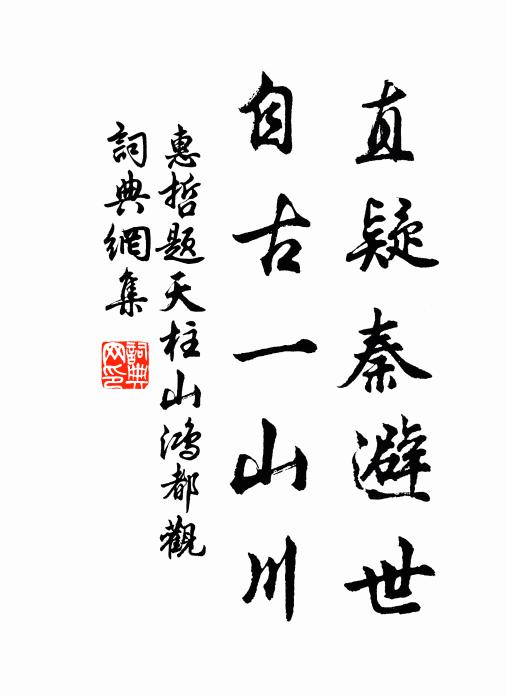 直疑秦避世
自古一山川
惠哲题天柱山鸿都觀
詞典網集
詞典
网印